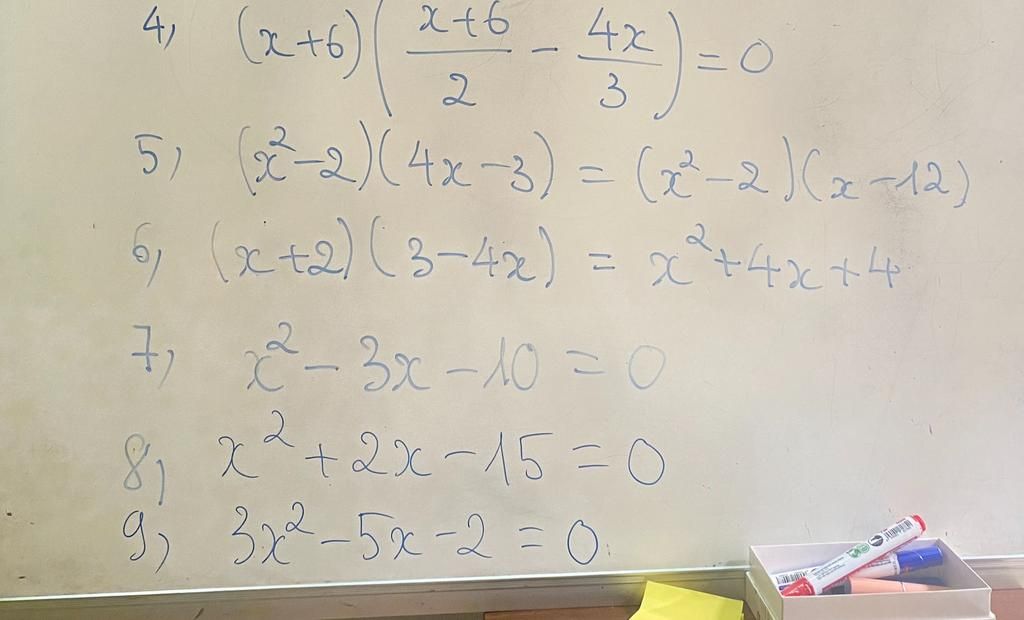 4, (x+6)((x+6)/2 - 4x/3) = 0
5, (x²-2)(4x-3) = (x²-2)(x-12)
6, (x+2)(3-4x) = x²+4x+4
7, x² - 3x - 10 = 0
8, x² + 2x - 15 = 0
9, 3x² - 5x - 2 = 0